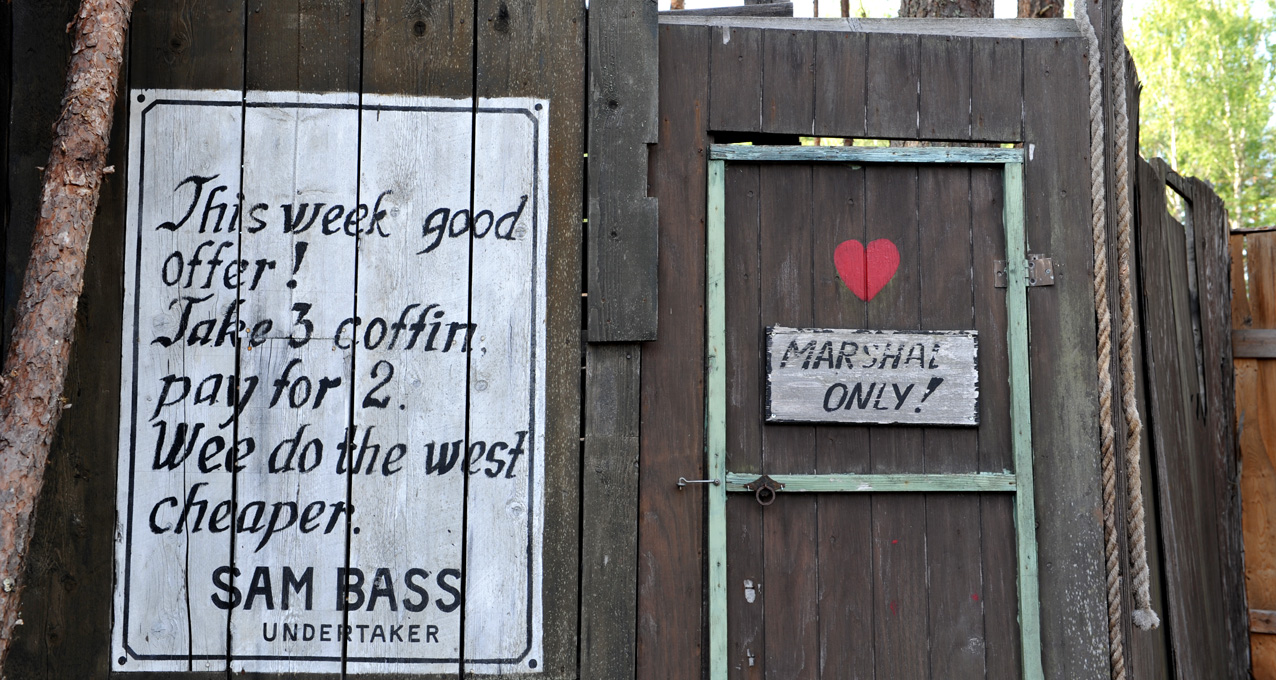 This week good
offer!
Take 3 coffin,
pay for 2.
Wee do the west
cheaper.
SAM BASS
UNDERTAKER
MARSHAL
ONLY!